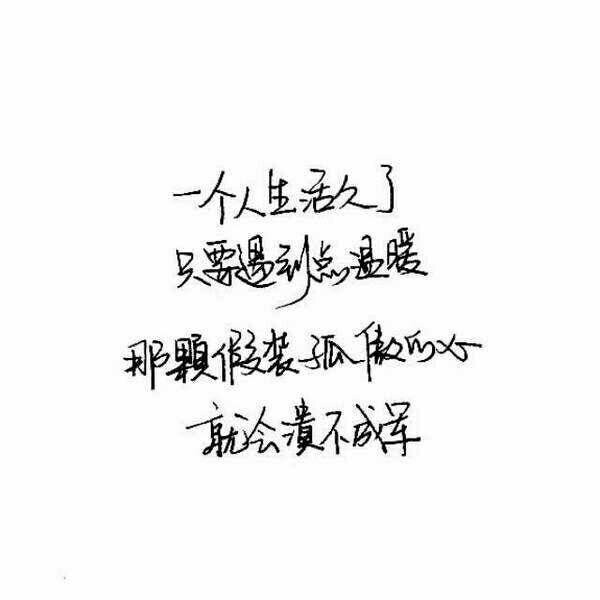 一个人生活久了
只要遇到点温暖
那顆假装孤傲的心
就会溃不成军